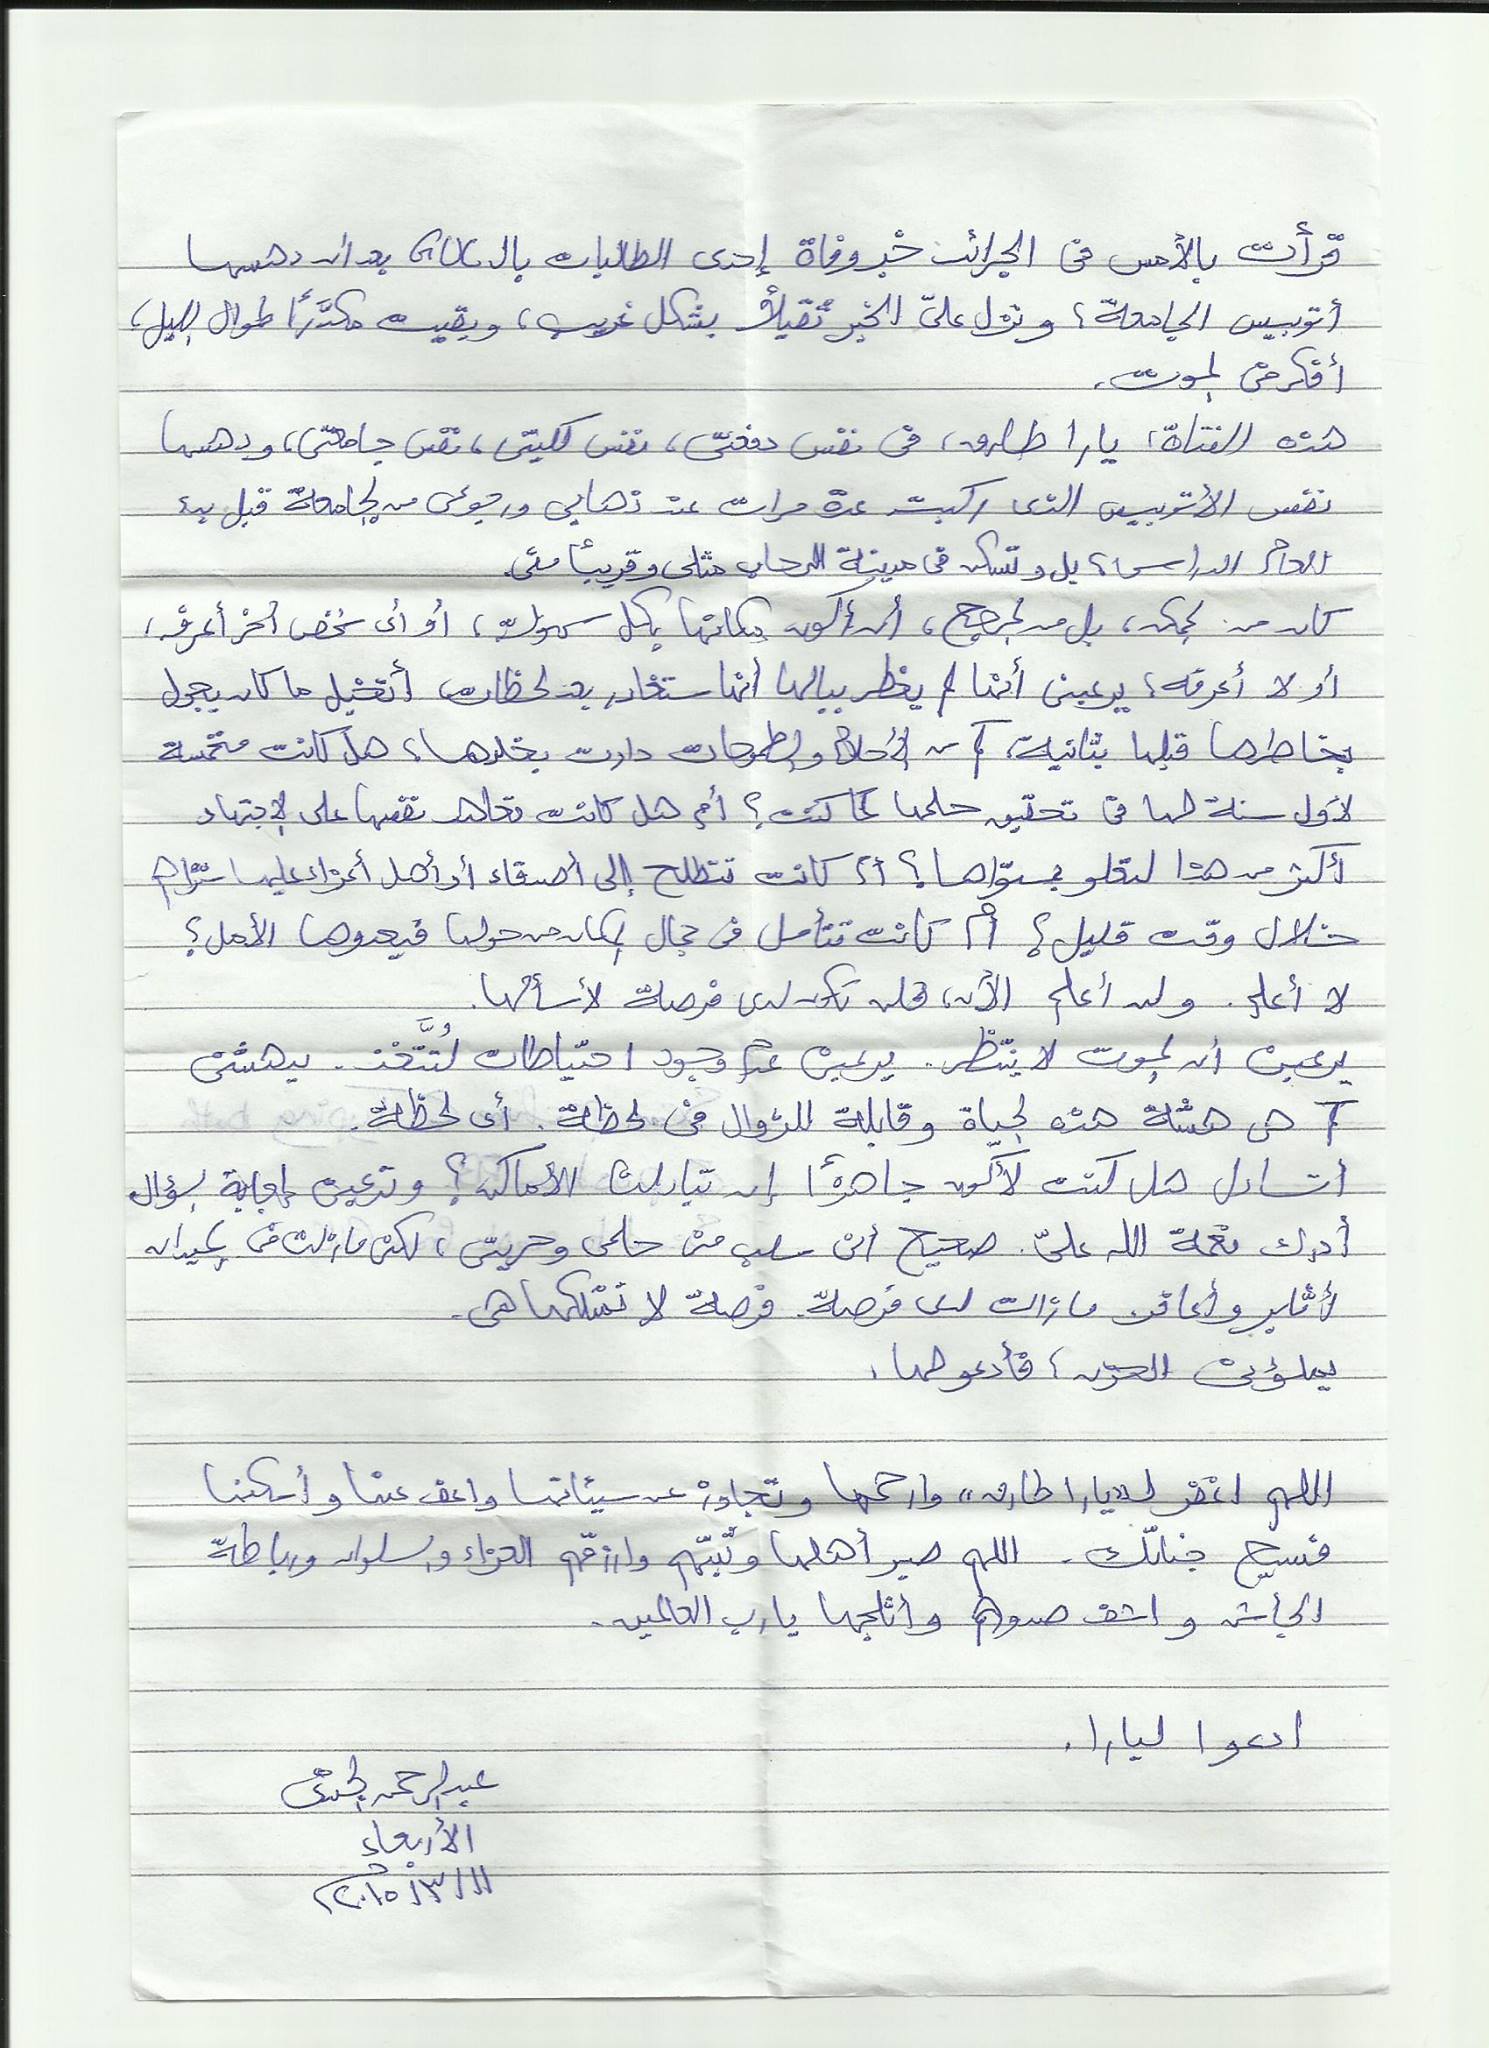 قرأت بالأمس في الجرائد خبر وفاة إحدى الطالبات بالـ GUC بعد أن دهسها
أتوبيس الجامعة؛ ونزل عليّ الخبر ثقيلًا بشكل غريب، وبقيت مكدَّرًا طوال الليل،
أفكر في الموت.
هذه الفتاة، يارا طارق، في نفس دفعتي، نفس كليتي، نفس جامعتي، ودهسها
نفس الأتوبيس الذي ركبت عدة مرات عند ذهابي ورجوعي من الجامعة قبل بدء
العام الدراسي؛ بل وتسكن في مدينة الرحاب مثلي وقريبًا مني.
كان من الممكن، بل من المرجح، أن أكون مكانها بكل سهولة، أو أي شخص آخر أعرفه،
أو لا أعرفه؛ يرعبني أنها لم يخطر ببالها أنها ستغادر بعد لحظات، أتخيل ما كان يجول
بخاطرها قبلها بثانية، كم من الأحلام والطموحات دارت بخلدها؛ هل كانت متحمسة
لأول سنة لها في تحقيق حلمها كما كنت؟ أم هل كانت تعاهد نفسها على الاجتهاد
أكثر من هذا لتعلو بمستواها؟ أم كانت تتطلع إلى أصدقاء أو أهل أعزاء عليها ستراهم
خلال وقت قليل؟ أم كانت تتأمل في جمال المكان من حولها فيحدوها الأمل؟
لا أعلم. ولن أعلم الآن، فلن تكون لدى فرصة لأسألها.
يرعبني أن الموت لا ينتظر. يرعبني عدم وجود احتياطات لتُتَّخذ. يدهشني
كم هي هشة هذه الحياة وقابلة للزوال في لحظة. أي لحظة.
أتساءل هل كنت لأكون جاهزًا إن تبادلنا الأماكن؟ وترعبني إجابة السؤال
أدرك نعمة الله عليّ. صحيح أن سلب مني حلمي وحريتي، لكني مازلت في الميدان
لأثابر وأعافر. مازالت لدى فرصة. فرصة لا تمتلكها هي.
يملؤني الحزن؛ فأدعو لها،
اللهم اغفر لـ "يارا طارق" وارحمها وتجاوز عن سيئاتها واعف عنها وأسكنها
فسيح جناتك. اللهم صبر أهلها وثبتّهم وارزقهم العزاء والسلوان ورباطة
الجأش واشف صدورهم وأثلجها يارب العالمين.
ادعوا ليارا.
عبدالرحمن الجندي
الأربعاء
١١/٣/٢٠١٥م